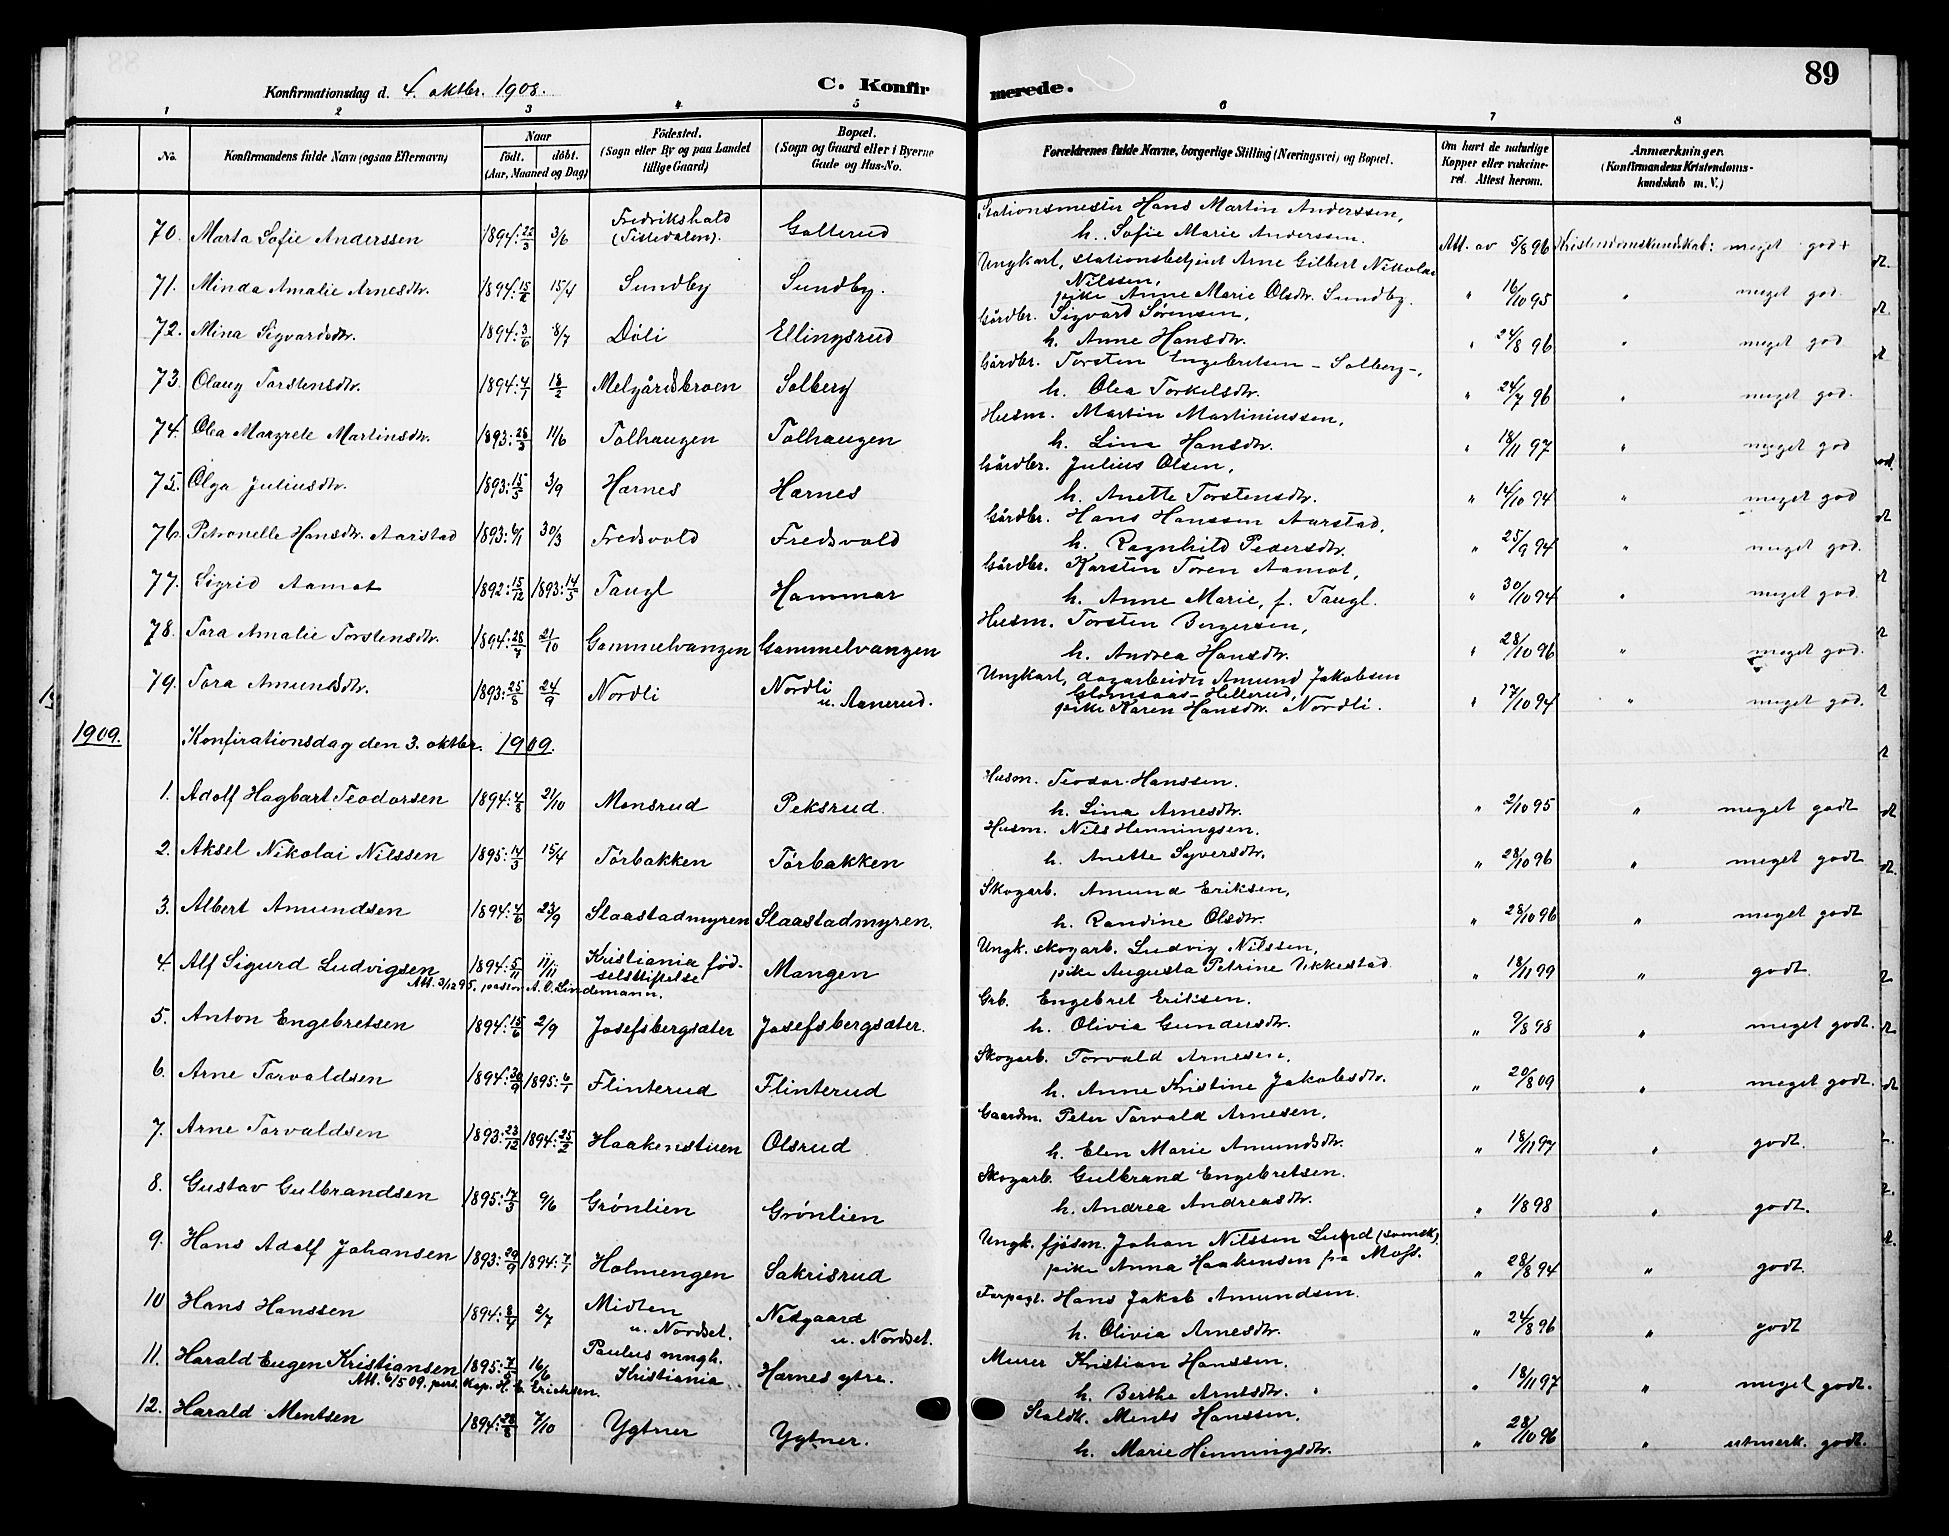 Konfirmationsdag d. 4. oktbr. 1908.
C. Konfirmerede.
89
1 2 3 4 5 6 7 8
No. Konfirmandens fulde Navn (ogsaa Efternavn) Naar født. døbt. (Aar, Maaned og Dag) Fødested. (Sogn eller By og paa Landet tillige Gaard) Bopæl. (Sogn og Gaard eller i Byerne Gade og Hus-No. Forældrenes fulde Navne, borgerlige Stilling (Næringsvei) og Bopæl. Om havt de naturlige Kopper eller vakcineret. Attest herom. Anmærkninger. (Konfirmandens Kristendomskundskab m. V.)
70. Marta Sofie Anderssen 1894: 25/3 3/6 Fredrikshald (Tistedalen). Galterud Stationsmester Hans Martin Anderssen, h. Sofie Marie Anderssen. Att. av 5/8 96 Kristendomskundskab: meget godt
71. Minda Amalie Arnesdtr. 1894: 15/2 15/4 Sundby Sundby. Ungkarl, stationsbetjent Arne Gilbert Nikolai Nilssen, pike Anne Marie Olsdtr. Sundby. " 16/10 95 " meget god.
72. Mina Sigvardsdtr. 1894: 3/6 8/7 Döli Ellingsrud Gårdbr. Sigvard Sørensen, h. Anne Hansdtr. " 24/8 96 " meget god
73. Olaug Torstensdtr. 1894: 4/1 18/2 Melgårdsbroen Solberg Gårdbr. Torsten Engebretsen - Solberg -, h. Olea Torkelsdtr. " 24/7 96 " meget god.
74. Olea Margrete Martinsdtr. 1893: 28/3 11/6 Tolhaugen Tolhaugen Husm. Martin Martiniussen, h. Lina Hansdtr. " 18/11 97 " meget god
75. Olga Juliusdtr. 1893: 15/5 3/9 Harnes Harnes Gårdbr. Julius Olsen, h. Anette Torstensdtr. " 14/10 94 " meget god
76. Petronelle Hansdtr. Aarstad 1893: 6/1 30/3 Fredsvold Fredsvold Gårdbr. Hans Hanssen Aarstad, h. Ragnhild Pedersdtr. " 25/9 94 " meget god.
77. Sigrid Aamot 1892: 15/12 1893: 14/5 Taugl Hammar Gårdbr. Karsten Toren Aamot, h. Anne Marie, f. Taugl. " 30/10 94 " meget god.
78. Tora Amalie Torstensdtr. 1894: 28/7 21/10 Gammelvangen Gammelvangen Husm. Torsten Bergersen, h. Andrea Hansdtr. " 28/10 96 " meget god.
79. Tora Amundsdtr. 1893: 25/8 24/9 Nordli Nordli u. Aanerud. Ungkarl, dagarbeider Amund Jakobsen Glomsaas-Hellerud, pike Karen Hansdtr. Nordli. " 17/10 94 " meget god.
1909. Konfirationsdag den 3. oktbr. 1909.
1. Adolf Hagbart Teodorsen 1894: 4/8 21/10 Monsrud Peksrud. Husm. Teodor Hanssen. h. Lina Arnesdtr. " 2/10 95 " meget godt
2. Aksel Nikolai Nilssen 1895: 14/3 15/4 Törbakken Törbakken Husm. Nils Henningsen. h. Anette Syversdtr. " 28/10 96 " meget godt
3. Albert Amundsen 1894: 4/6 23/9 Slaastadmyren Slaastadmyren. Skogarb. Amund Eriksen, h. Randine Olsdtr. " 28/10 96 " meget godt
4. Alf Sigurd Ludvigsen 1894: 5/11 11/11 Kristiania fødselsstiftelse Mangen Ungk. skogarb. Ludvig Nilssen, pike Augusta Petrine Vikkestad " 18/11 99 " godt.
Att. 3/12 95. pastor A. O. Lindemann.
5. Anton Engebretsen 1894: 15/6 2/9 Josefsbergsæter Josefsbergsæter. Grb. Engebret Eriksen. h. Olivia Gundersdtr. " 9/8 98 " meget godt.
6. Arne Torvaldsen 1894: 30/9 1895: 6/1 Flinterud Flinterud Skogarb. Torvald Arnesen. h. Anne Kristine Jakobsdtr. " 20/8 09 " meget godt.
7. Arne Torvaldsen 1893: 23/12 1894: 25/2 Haakenstuen Olsrud Gaardm. Peter Torvald Arnesen. h. Elen Marie Amundsdtr. " 18/11 97 " godt.
8. Gustav Gulbrandsen 1895: 17/3 9/6 Grönlien Grönlien Skogarb. Gulbrand Engebretsen. h. Andrea Andreasdtr. " 1/8 98 " godt.
9. Hans Adolf Johansen 1893: 29/9 1894: 7/1 Holmengen Sakrisrud Ungk. fjösm. Johan Nilssen Lund (svensk), pike Anna Haakensen fra Moss. " 28/8 94 " godt.
10 Hans Hanssen 1894: 8/4 2/7 Midten u. Nordset. Nedgaard u. Nordset. Forpagt. Hans Jakob Amundsen. h. Olivia Arnesdtr. " 24/8 96 " godt
11. Harald Eugen Kristiansen 1895: 7/5 16/6 Paulus mngh. Kristiania Harnes ytre. Murer Kristian Hanssen. h. Berthe Arntsdtr. " 18/11 97 " meget godt.
Att. 6/5 09. pers. kap. H. C. Erichsen.
12. Harald Mentsen 1894: 28/8 7/10 Ygtner Ygtner. Staldk. Ments Hanssen. h. Marie Henningsdtr. " 28/10 96 " utmerk. godt.